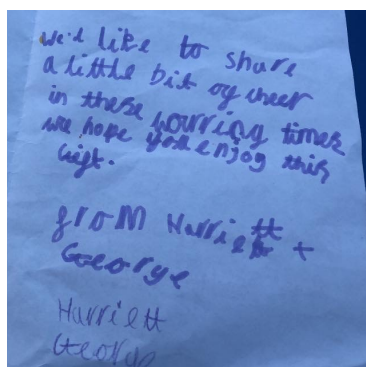 we'd like to share
a little bit of cheer
in these worring times
we hope you enjoy this
gift.
from Harriett +
George
Harriett
George